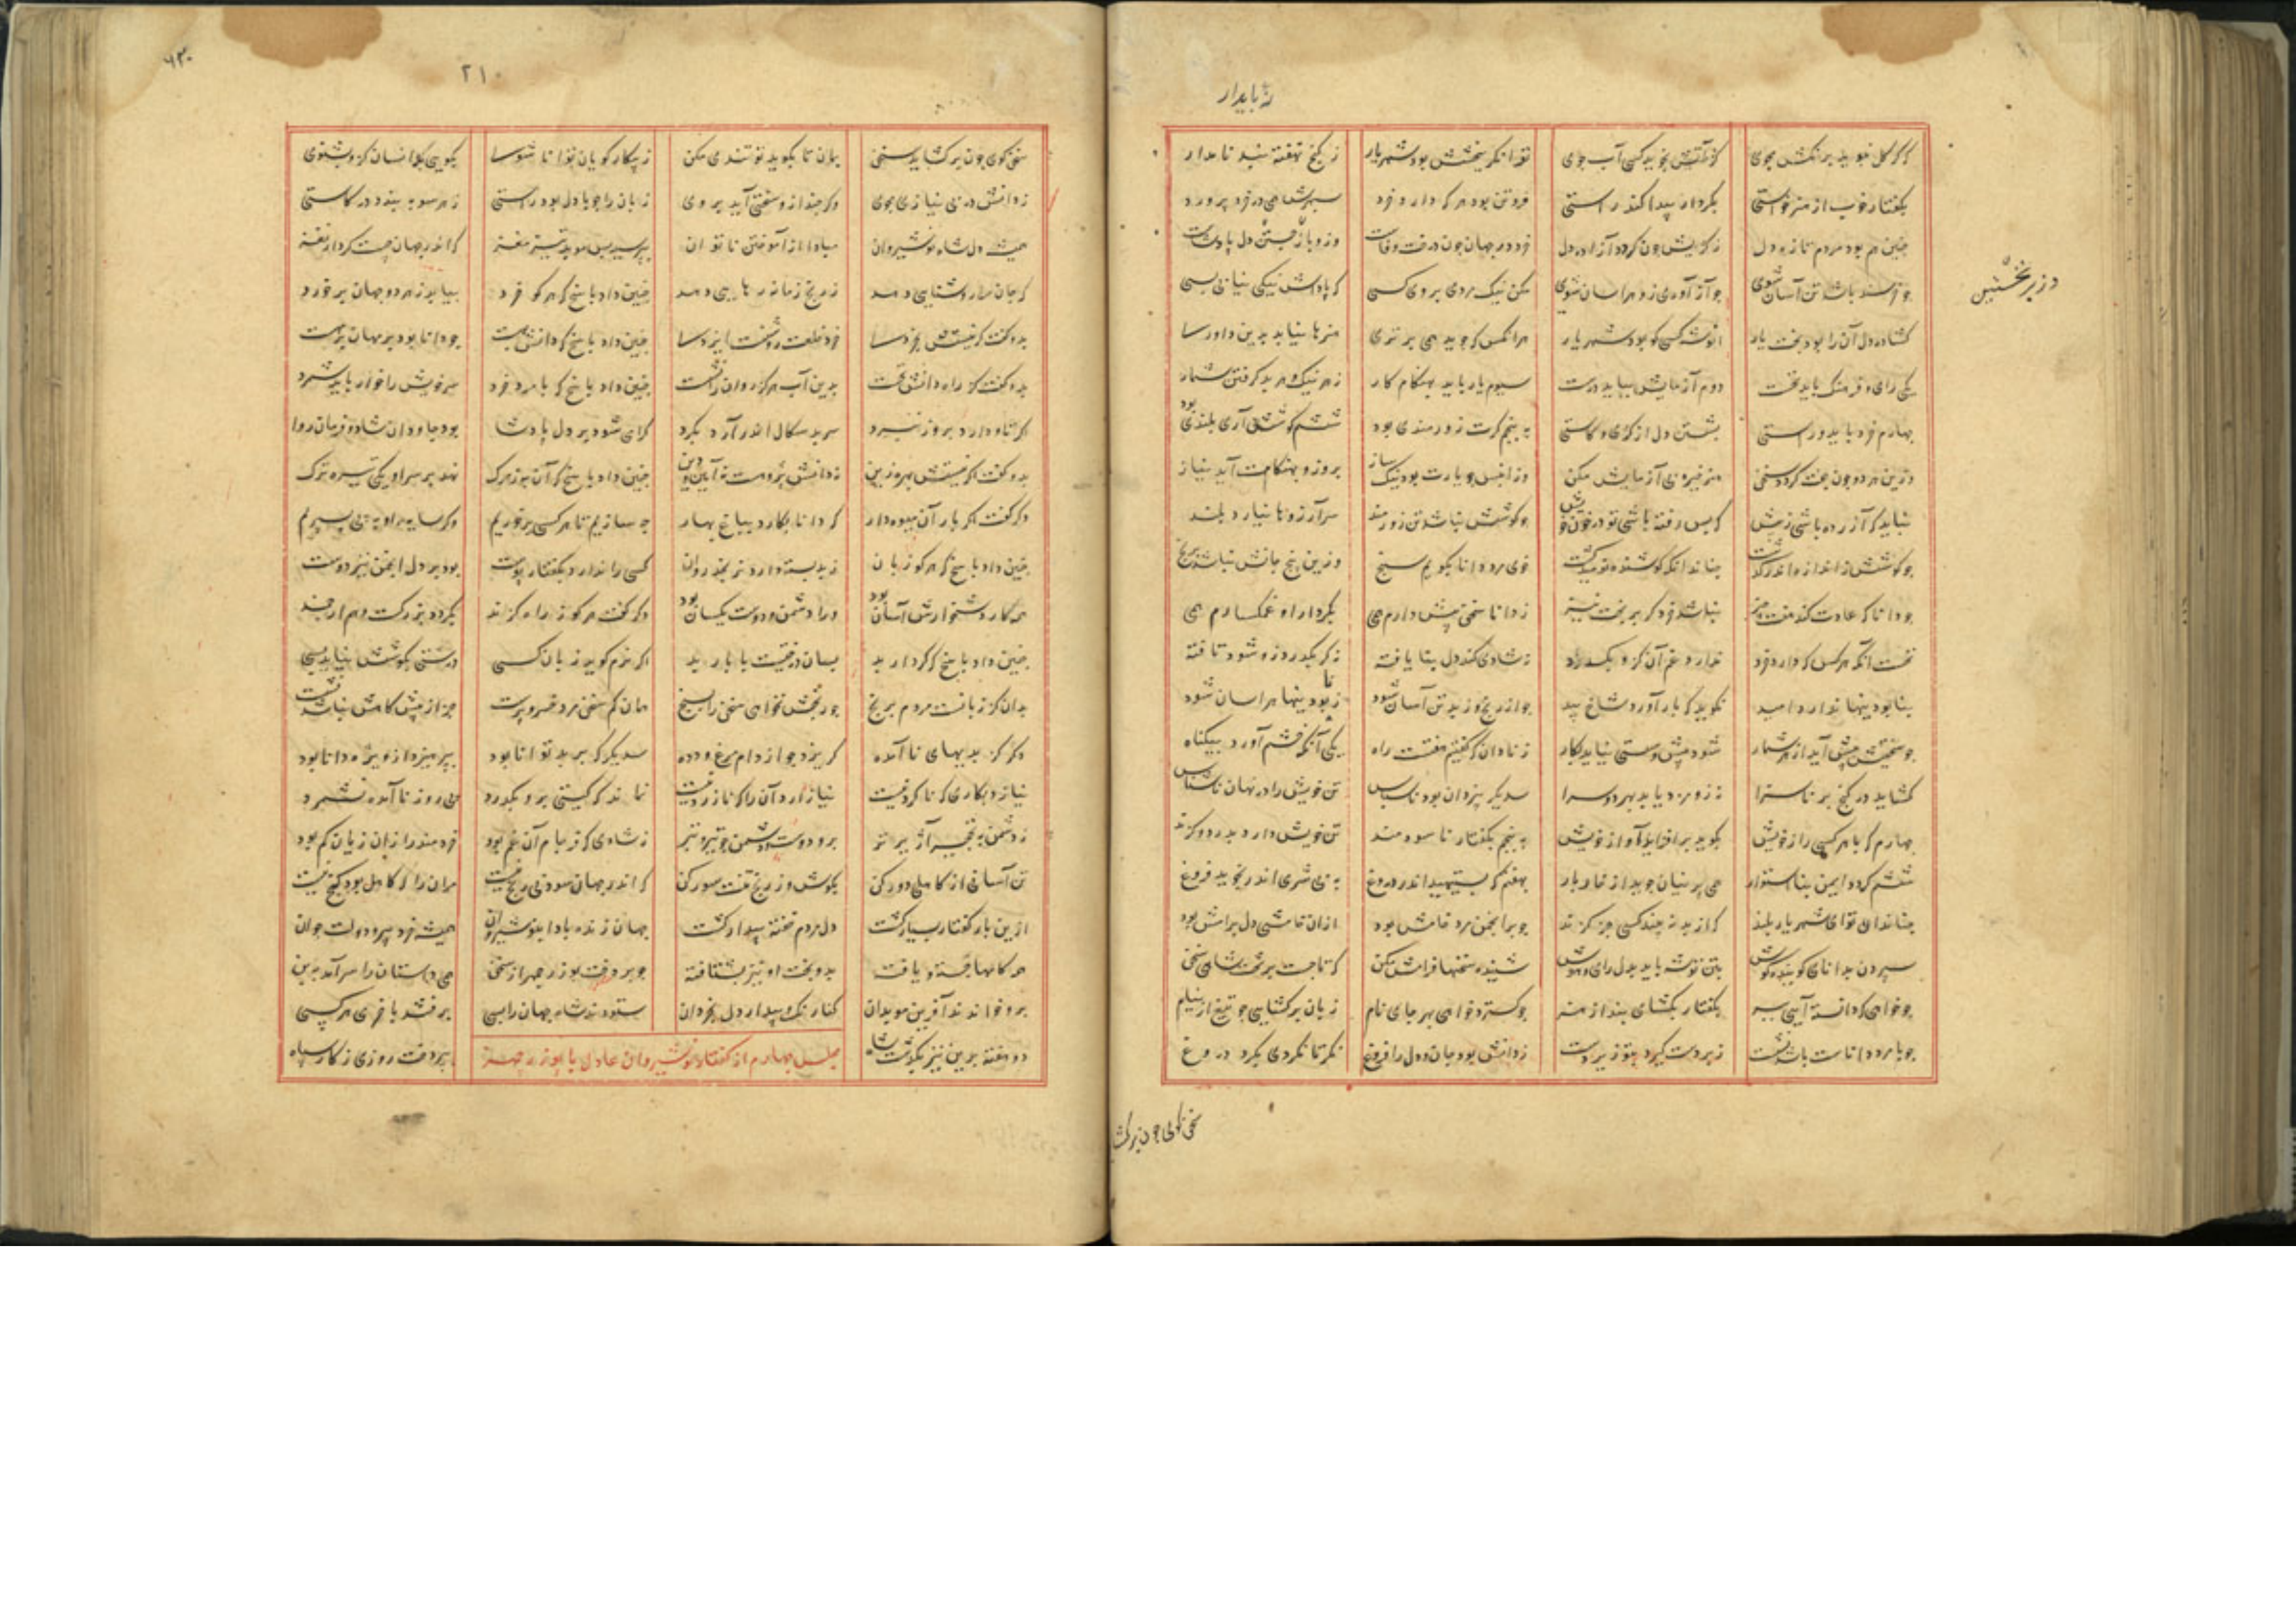 نه پایدار
دگر گل نبوید برنگش مجوی کز آتش نجوید کسی آب جوی توانگر ببخشش بود شهریار ز گنج نهفته نشد نامدار
بگفتار خوب از هنر خواستی بکردار پیدا کند راستی فروتن بود هر که دارد خرد سپهرش همی در خرد پرورد
چنین هم بود مردم تازه دل ز کژیش چون کردد آزاده دل خرد در جهان چون درخت وفاست وزو بار جستن دل پادشاست
چو خرسند باشد تن آسان شوی چو آز آوری زو هراسان شوی مکن نیک مردی بروی کسی که پاداش نیکی نیابی بسی
وزیر نخستین
گشاده دل آن را بود بخت یار انوشه کسی کو بود شهریار هر آنکس که جوید همی برتری هنرها بباید بدین داورسا
یکی رای و فرهنگ باید نخست دوم آزمایش بباید درست سیوم یار باید بهنگام کار ز هر نیک و هر بد گرفتن شمار
چهارم خرد باید و راستی بشستن دل از کژی و کاستی به پنجم گرت زورمندی بود ششم کوشش آری بلندی بود
وزین هر دو چون جفت گردد سخن هنر خیره بی آزمایش مکن وزان پس چو یارت بود نیک ساز بروز و بهنگامت آید نیاز
چو کوشش نباشد تن زورمند سر آرزوها نیارد بلند
چو کوشش ز اندازه اندر گذشت چنان دان که کوشنده نومید گشت خوی مرد دانا بگویم پنج وزین پنج جانش نباشد برنج
چو دانا که عادت کند هفت چیز نباشد خرد گر بر بخت نیز ز دانا سخن پیش دارم همی بکردار او غمگسارم همی
نخست آنکه هر کس که دارد خرد ندارد غم آن کزو بگذرد نه شادی کند دل بنا یافته نه گر بگذرد زو شود تافته
بنابودنیها ندارد امید نگوید که بار آورد شاخ بید چو از رنج وز بد تن آسان شود ز نابودنیها هراسان شود
چو سختیش پیش آید از هر شمار شود پیش و سستی نیاید بکار ز نادان که گفتیم هفتست راه یکی آنکه خشم آورد بیگناه
گشاید در گنج بر ناسزا نه زو مزد یابد بهر دو سرا سدیگر بیزدان بود ناسپاس تن خویش را در نهان ناشناس
چهارم که با هر کسی راز خویش بگوید برافرازد آواز خویش به پنجم بگفتار ناسودمند تن خویش دارد بدرد و گزند
ششم گردد ایمن بنا استوار همی پرنیان جوید از خار بار بهفتم که بستیهد اندر دروغ به بی شرمی اندر بجوید فروغ
چنان دان تو ای شهریار بلند که از بد نه بیند کسی جز گزند چو بر انجمن مرد خامش بود از آن خامشی دل برامش بود
سپردن بدانای گوینده گوش بتن توشه یابد بدل رای و هوش شنیده سخنها فرامش مکن که تاجست بر تخت شاهی سخن
چو خواهی که دانسته آید ببر بگفتار بگشای بند از هنر چو گسترد خواهی بهر جای نام زبان برگشایی چو تیغ از نیام
چو با مرد دانات باشد نشست زبردست گردد بتو زیردست ز دانش بود جان و دل را فروغ نگر تا نگردی بگرد دروغ
سخن گوی چون بر گشا
۲۱۰
سخن گوی چون بر گشاید سخن بمان تا بگوید تو تندی مکن ز پیکار گویان توانا شوسا نگویی بدانسان کزو بشنوی
ز دانش در بی نیازی مجوی وگر چند ازو سختی آید بروی زبان را چو با دل بود راستی ز هر سو به بندد در کاستی
همیشه دل شاه نوشیروان مبادا از آموختن ناتوان بپرسید پس موبد تیزمغز که اندر جهان چیست کردار نغز
که جان را روشنایی دهد ز رنج زمانه رهایی دهد چنین داد پاسخ که هر کو خرد بیابد ز هر دو جهان بر خورد
بدو گفت گر نیستش بخردسا خرد خلعت روشنست ایزدسا چنین داد پاسخ که دانش بهست چو دانا بود بر مهان بر مهست
بدو گفت گر راه دانش نجست بدین آب هرگز روان را نشست چنین داد پاسخ که با مرد خرد سر خویش را خوار باید شمرد
اگر تاو دارد بروز نبرد سر بدسگال اندر آرد بگرد گرامی شود بر دل پادشا بود جاودان شاد و فرمان روا
بدو گفت اگر نیستش بهره زین نه دانش پژوهست نه آیین و دین چنین داد پاسخ که آن به که مرگ نهد بر سر او یکی تیره ترگ
دگر گفت اگر بار آن میوه دار که دانا بکارد بباغ بهار چه سازیم تا هر کسی بر خوریم وگر سایه او به پی بسپریم
چنین داد پاسخ که هر کو زبان ز بد بسته دارد نرنجد روان کسی را ندارد بگفتار پوست بود بر دل انجمن نیز دوست
همه کار دشخوارش آسان بود ورا دشمن و دوست یکسان بود دگر گفت هر کو ز راه گزند بگردد بزرگست و هم ارجمند
چنین داد پاسخ که کردار بد بسان درختیست با بار بد اگر نرم گوید زبان کسی درشتی بگوشش نیاید بسی
بدان کز زبانست مردم برنج چو رنجش نخواهی سخن را بسنج همان کم سخن مرد خسروپرست جز از پیش گاهش نباشد نشست
دگر کز بدیهای نا آمده گریزد چو از دام مرغ و دده سدیگر که بر بد توانا بود بپرهیزد از ویژه دانا بود
نیازد بکاری که ناکردنیست نیازارد آن را که نازردنیست نماند که گیتی برو بگذرد پی روز نا آمده نشمرد
ز دشمن به نخجیر آژیرتر برو دوست و دشمن چو تیر و تبر ز شادی که فرجام آن غم بود خردمند را زان زیان کم بود
تن آسانی از کاهلی دور کن بکوش و ز رنج تنت سور کن که اندر جهان سود بی رنج نیست مر آن را که کاهل بود گنج نیست
ازین بار گفتار بسیار گشت دل مردم خفته بیدار گشت جهان زنده بادا بنوشیروان همیشه خرد پیر و دولت جوان
برو خواندند آفرین موبدان کنارنگ و بیدار دل بخردان ستودند شاه جهان را بسی برفتند با خرمی هر کسی
دو هفته برین نیز بگذشت شاه مجلس چهارم از گفتار نوشیروان عادل با ابوذرجمهر بپردخت روزی ز کار سپاه